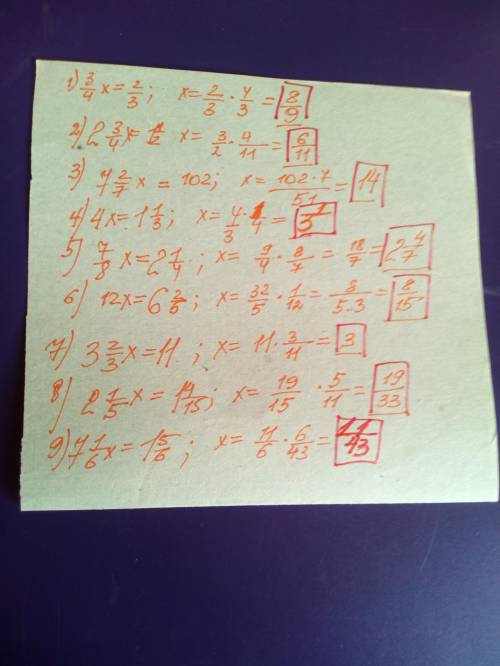 1) 3/4 x = 2/3 ; x = 2/3 · 4/3 = 8/9
2) 2 3/4 x = 1 1/2 x = 3/2 · 4/11 = 6/11
3) 7 2/7 x = 102; x = 102·7/51 = 14
4) 4x = 1 1/3 ; x = 4/3 · 1/4 =
5) 7/8 x = 2 1/4 ; x = 9/4 · 8/7 = 18/7 = 2 4/7
6) 12x = 6 2/5 ; x = 32/5 · 1/12 = 8/5·3 = 8/15
7) 3 2/3 x = 11 ; x = 11 · 3/11 = 3
8) 2 1/5 x = 1 4/15 ; x = 19/15 · 5/11 = 19/33
9) 7 1/6 x = 1 5/6 ; x = 11/6 · 6/43 = 11/43